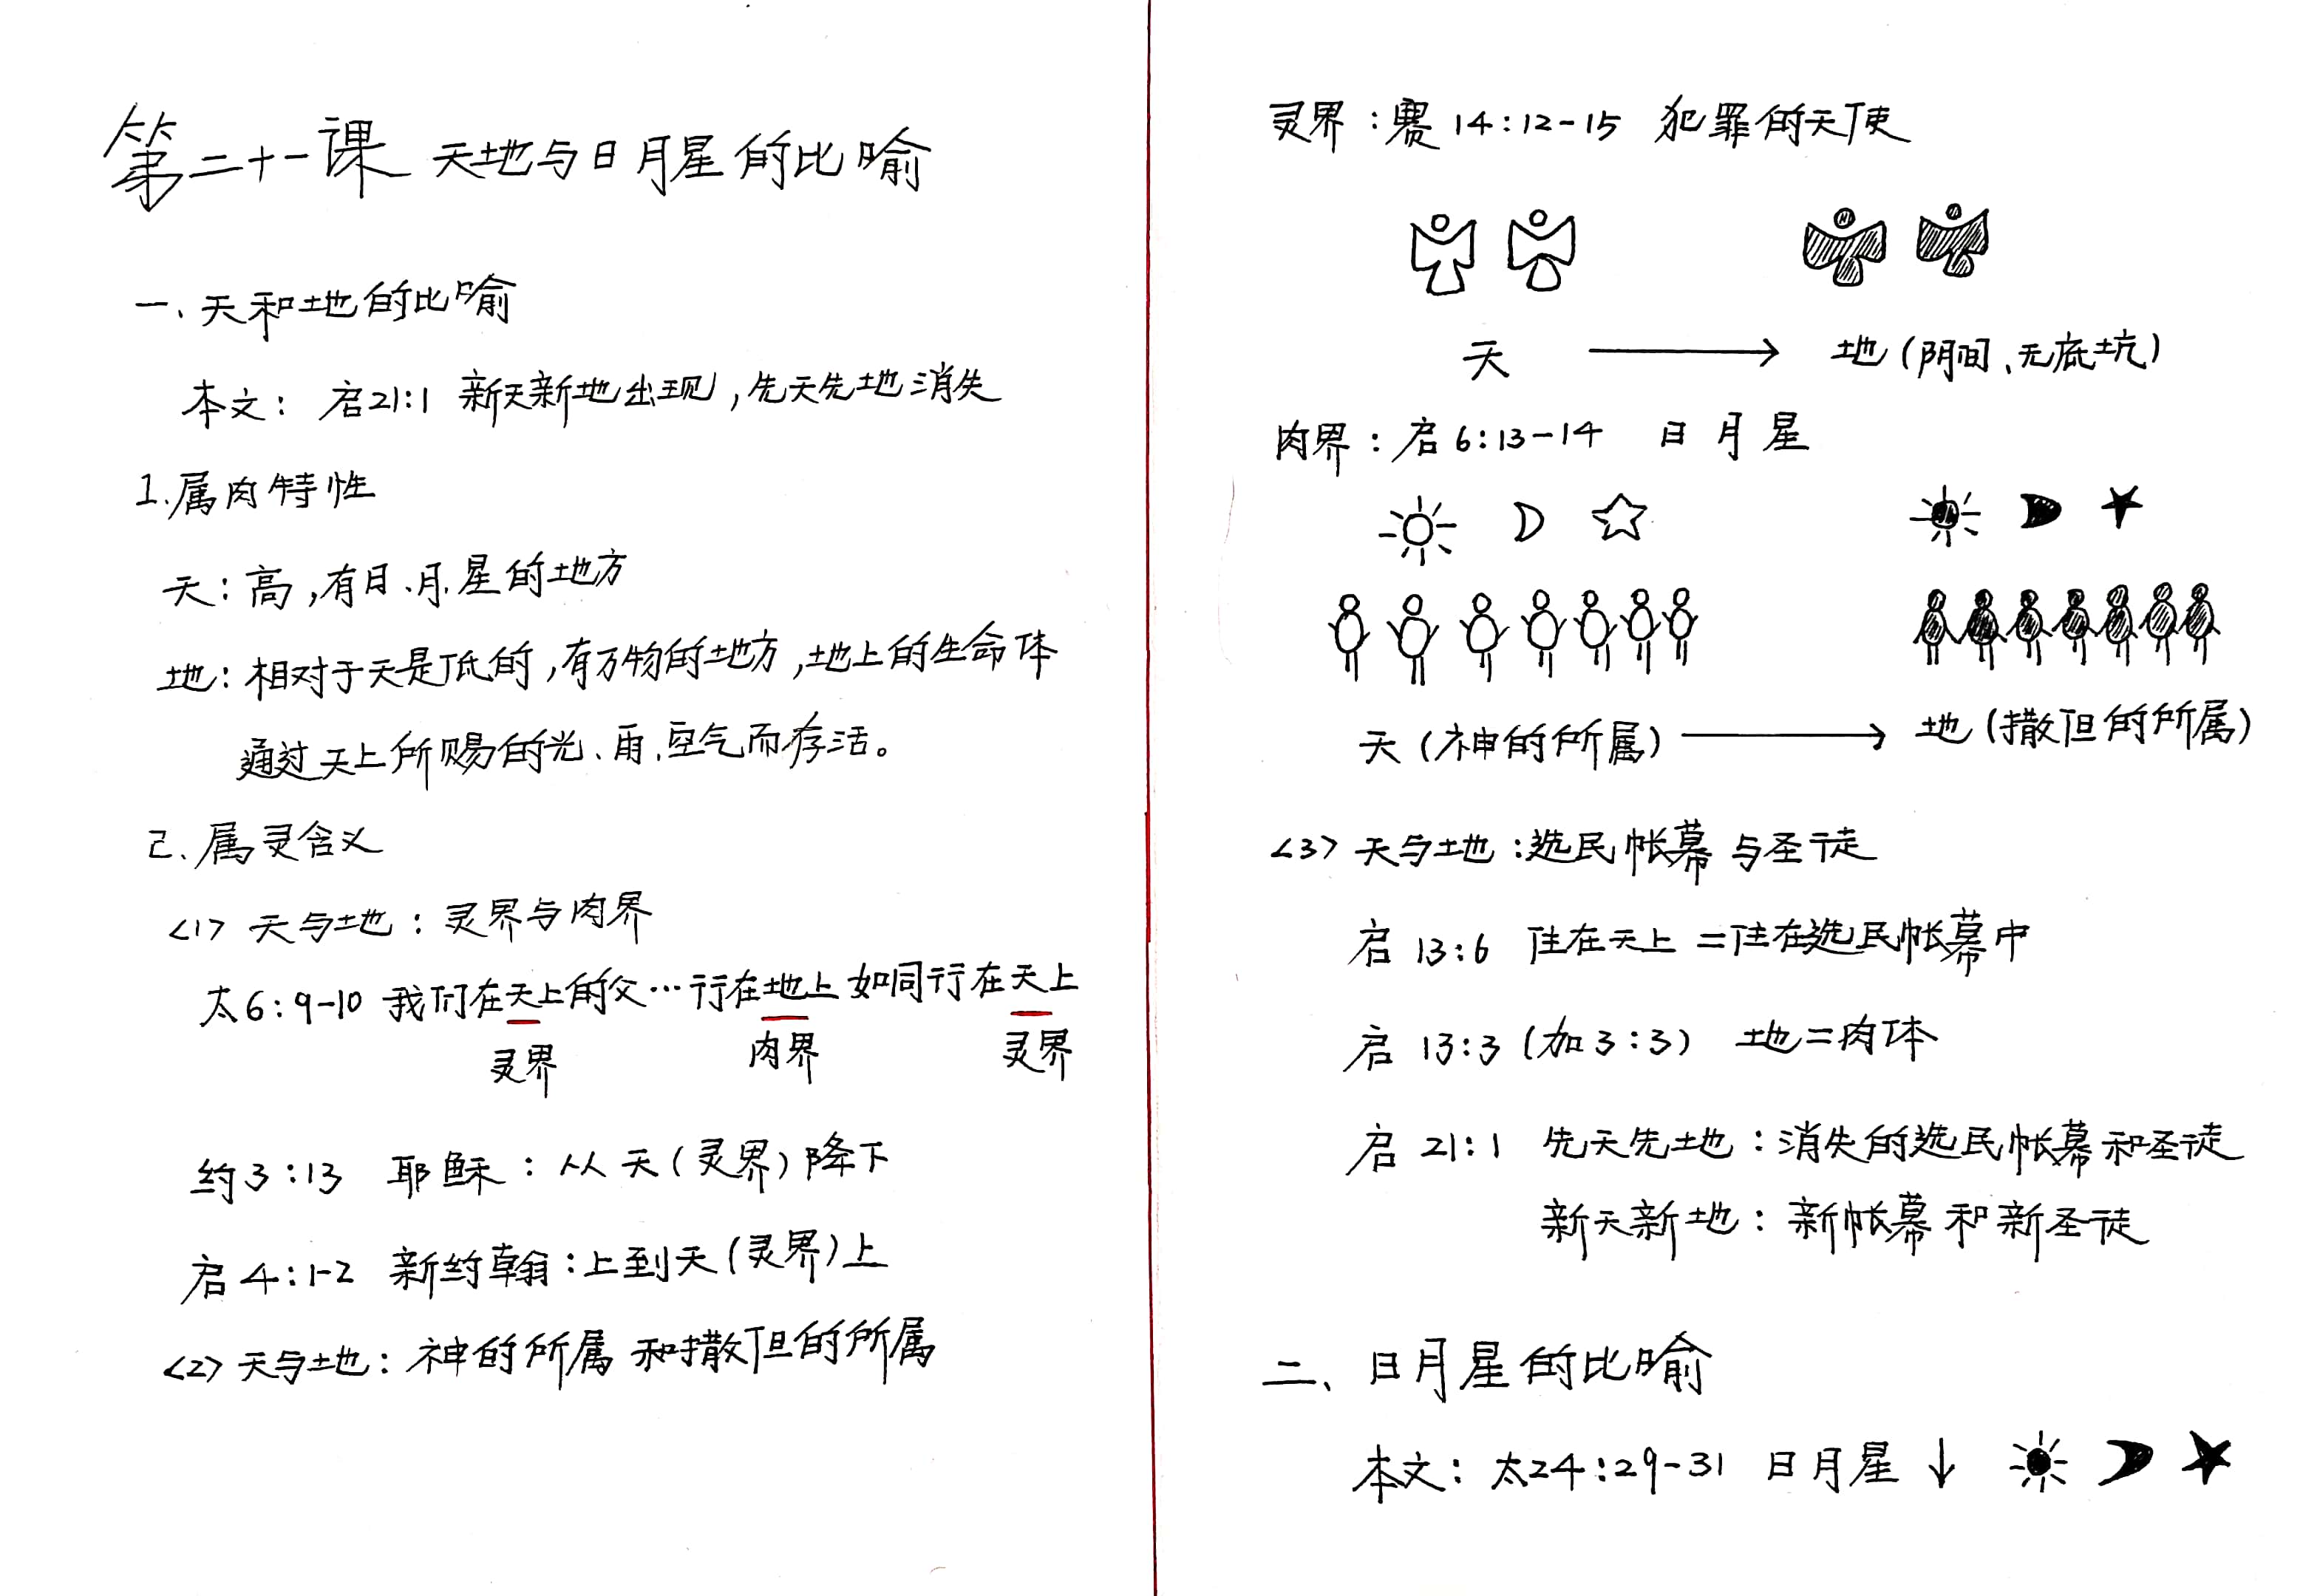 第二十一课 天地与日月星的比喻
一、天和地的比喻
本文： 启21:1 新天新地出现，先天先地消失
1.属肉特性
天：高，有日、月、星的地方
地：相对于天是低的，有万物的地方，地上的生命体
通过天上所赐的光、雨、空气而存活。
2、属灵含义
<1> 天与地：灵界与肉界
太6：9-10 我们在天上的父…行在地上如同行在天上
灵界 肉界 灵界
约3：13 耶稣：从天（灵界）降下
启4：1-2 新约翰：上到天（灵界）上
<2> 天与地：神的所属和撒但的所属
灵界：赛14：12-15 犯罪的天使
天 → 地（阴间、无底坑）
肉界：启6：13-14 日月星
天（神的所属） → 地（撒但的所属）
<3> 天与地：选民帐幕与圣徒
启13：6 住在天上＝住在选民帐幕中
启13：3（加3：3） 地＝肉体
启21：1 先天先地：消失的选民帐幕和圣徒
新天新地：新帐幕和新圣徒
二、日月星的比喻
本文：太24：29-31 日月星↓